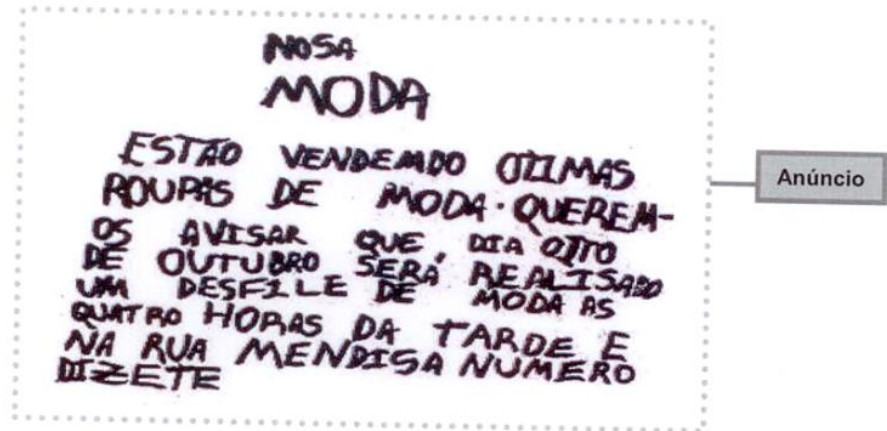 NOSA
MODA
ESTÃO VENDEMDO OTIMAS
ROUPAS DE MODA. QUEREM-
OS AVISAR QUE DIA OITO
DE OUTUBRO SERÁ REALISADO
UM DESFILE DE MODA AS
QUATRO HORAS DA TARDE E
NA RUA MENDISA NUMERO
DIZETE
Anúncio